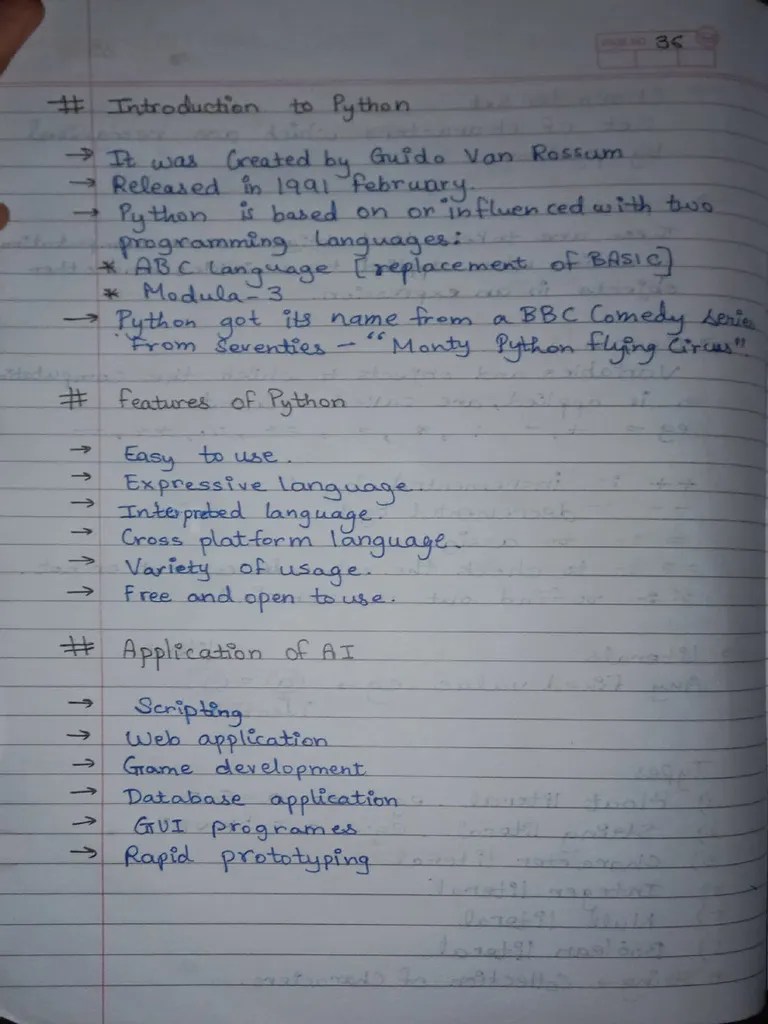 PAGE NO. 36
# Introduction to Python
→ It was Created by Guido Van Rossum
→ Released in 1991 february.
→ Python is based on or influenced with two
programming languages:
* ABC Language [replacement of BASIC]
* Modula-3
→ Python got its name from a BBC Comedy series
From seventies - "Monty Python flying Circus".
# features of Python
→ Easy to use.
→ Expressive language.
→ Interpreted language.
→ Cross platform language.
→ Variety of usage.
→ Free and open to use.
# Application of AI
→ Scripting
→ Web application
→ Game development
→ Database application
→ GUI programes
→ Rapid prototyping